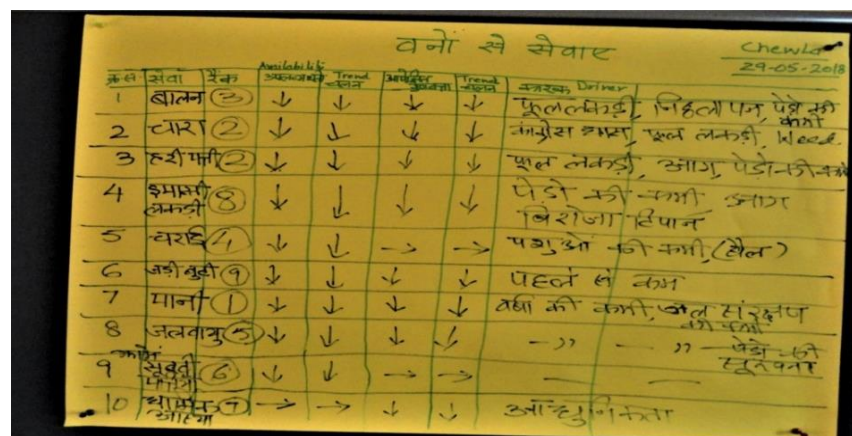 वनों से सेवाए
Chewla
29-05-2018
क्र.सं सेवा रैंक Availability उपलब्धता Trend चलन Trend चलन कारक Driver
1 बालन 3 ↓ ↓ ↓ ↓ फूललकड़ी, पेड़ो की कमी
2 चारा 2 ↓ ↓ ↓ ↓ कांग्रेस घास, फूल लकड़ी, Weed
3 हरी पत्ती 2 ↓ ↓ ↓ ↓ फूल लकड़ी, आग, पेड़ो की कमी
4 इमारती लकड़ी 8 ↓ ↓ ↓ ↓ पेड़ो की कमी आग
बिरोजा टिपान
5 चराई 4 ↓ ↓ → → पशुओं की कमी, (बैल)
6 जड़ी बुटी 9 ↓ ↓ ↓ ↓ पहले से कम
7 पानी 1 ↓ ↓ ↓ ↓ वर्षा की कमी, जल संरक्षण की कमी
8 जलवायु 5 ↓ ↓ ↓ ↓ -,, - ,, पेड़ो की
9 6 ↓ ↓ → → - -
10 7 → → ↓ ↓ आधुनिकता